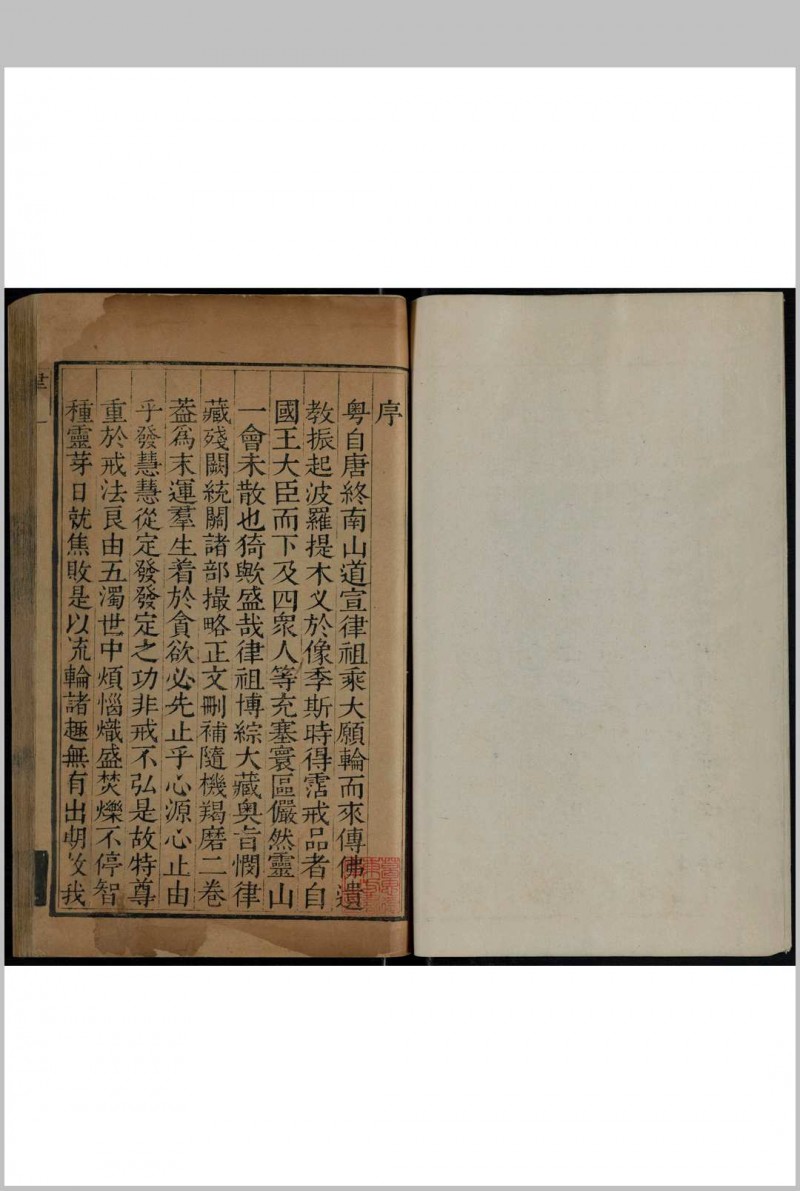 序
粵自唐終南山道宣律祖乘大願輪而來傳佛遺
教振起波羅提木义於像季斯時得霑戒品者自
國王大臣而下及四衆人等充塞寰區儼然靈山
一會未散也猗歟盛哉律祖博綜大藏奥旨憫律
藏殘闕統關諸部撮略正文刪補隨機羯磨二卷
葢爲末運羣生着於貪欲必先止乎心源心止由
乎發慧慧從定發發定之功非戒不弘是故特尊
重於戒法良由五濁世中煩惱熾盛焚爍不停智
種靈芽日就焦敗是以流輪諸趣無有出期故我